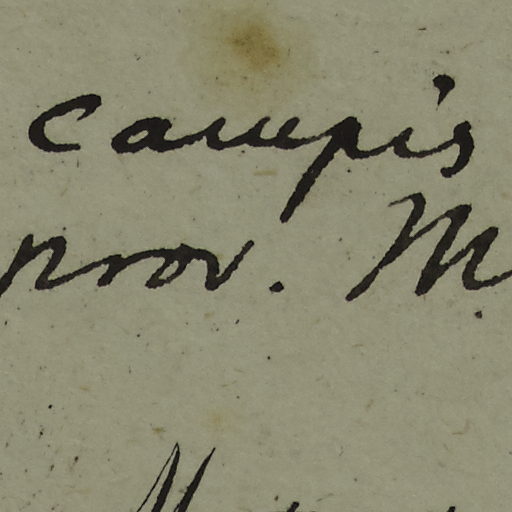 campis
prov. M